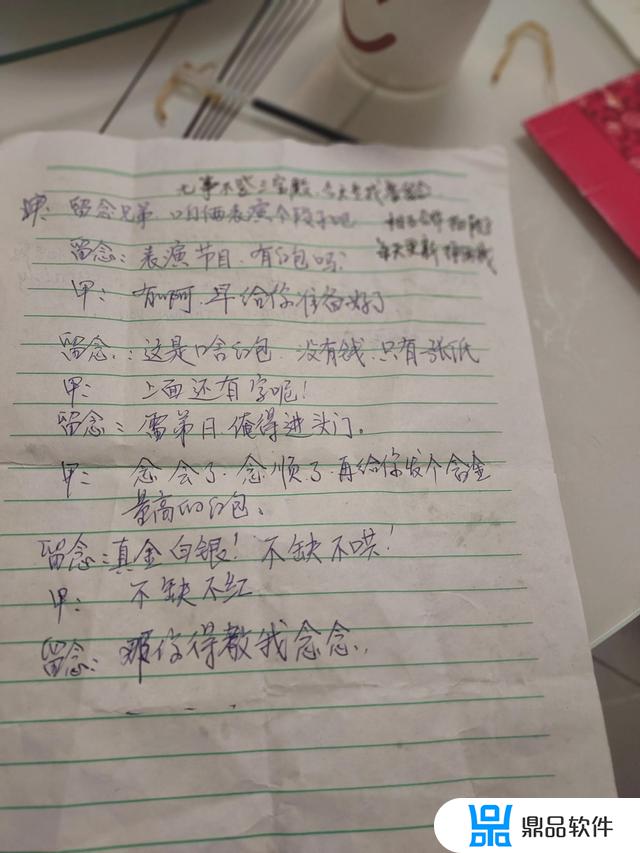 无事不登三宝殿
甲：留念兄弟，咱俩表演个段子吧
每天更新
留念：表演节目，有红包吗？
甲：有啊，早给你准备好了
留念：这是啥红包，没有钱，只有一张纸
甲：上面还有字呢！
留念：俺得进头门。
甲：念会了，念顺了，再给你发个含金
量高的红包。
留念：真金白银！不缺不哄！
甲：不缺不红
留念：那你得教我念念，
鼎品软件